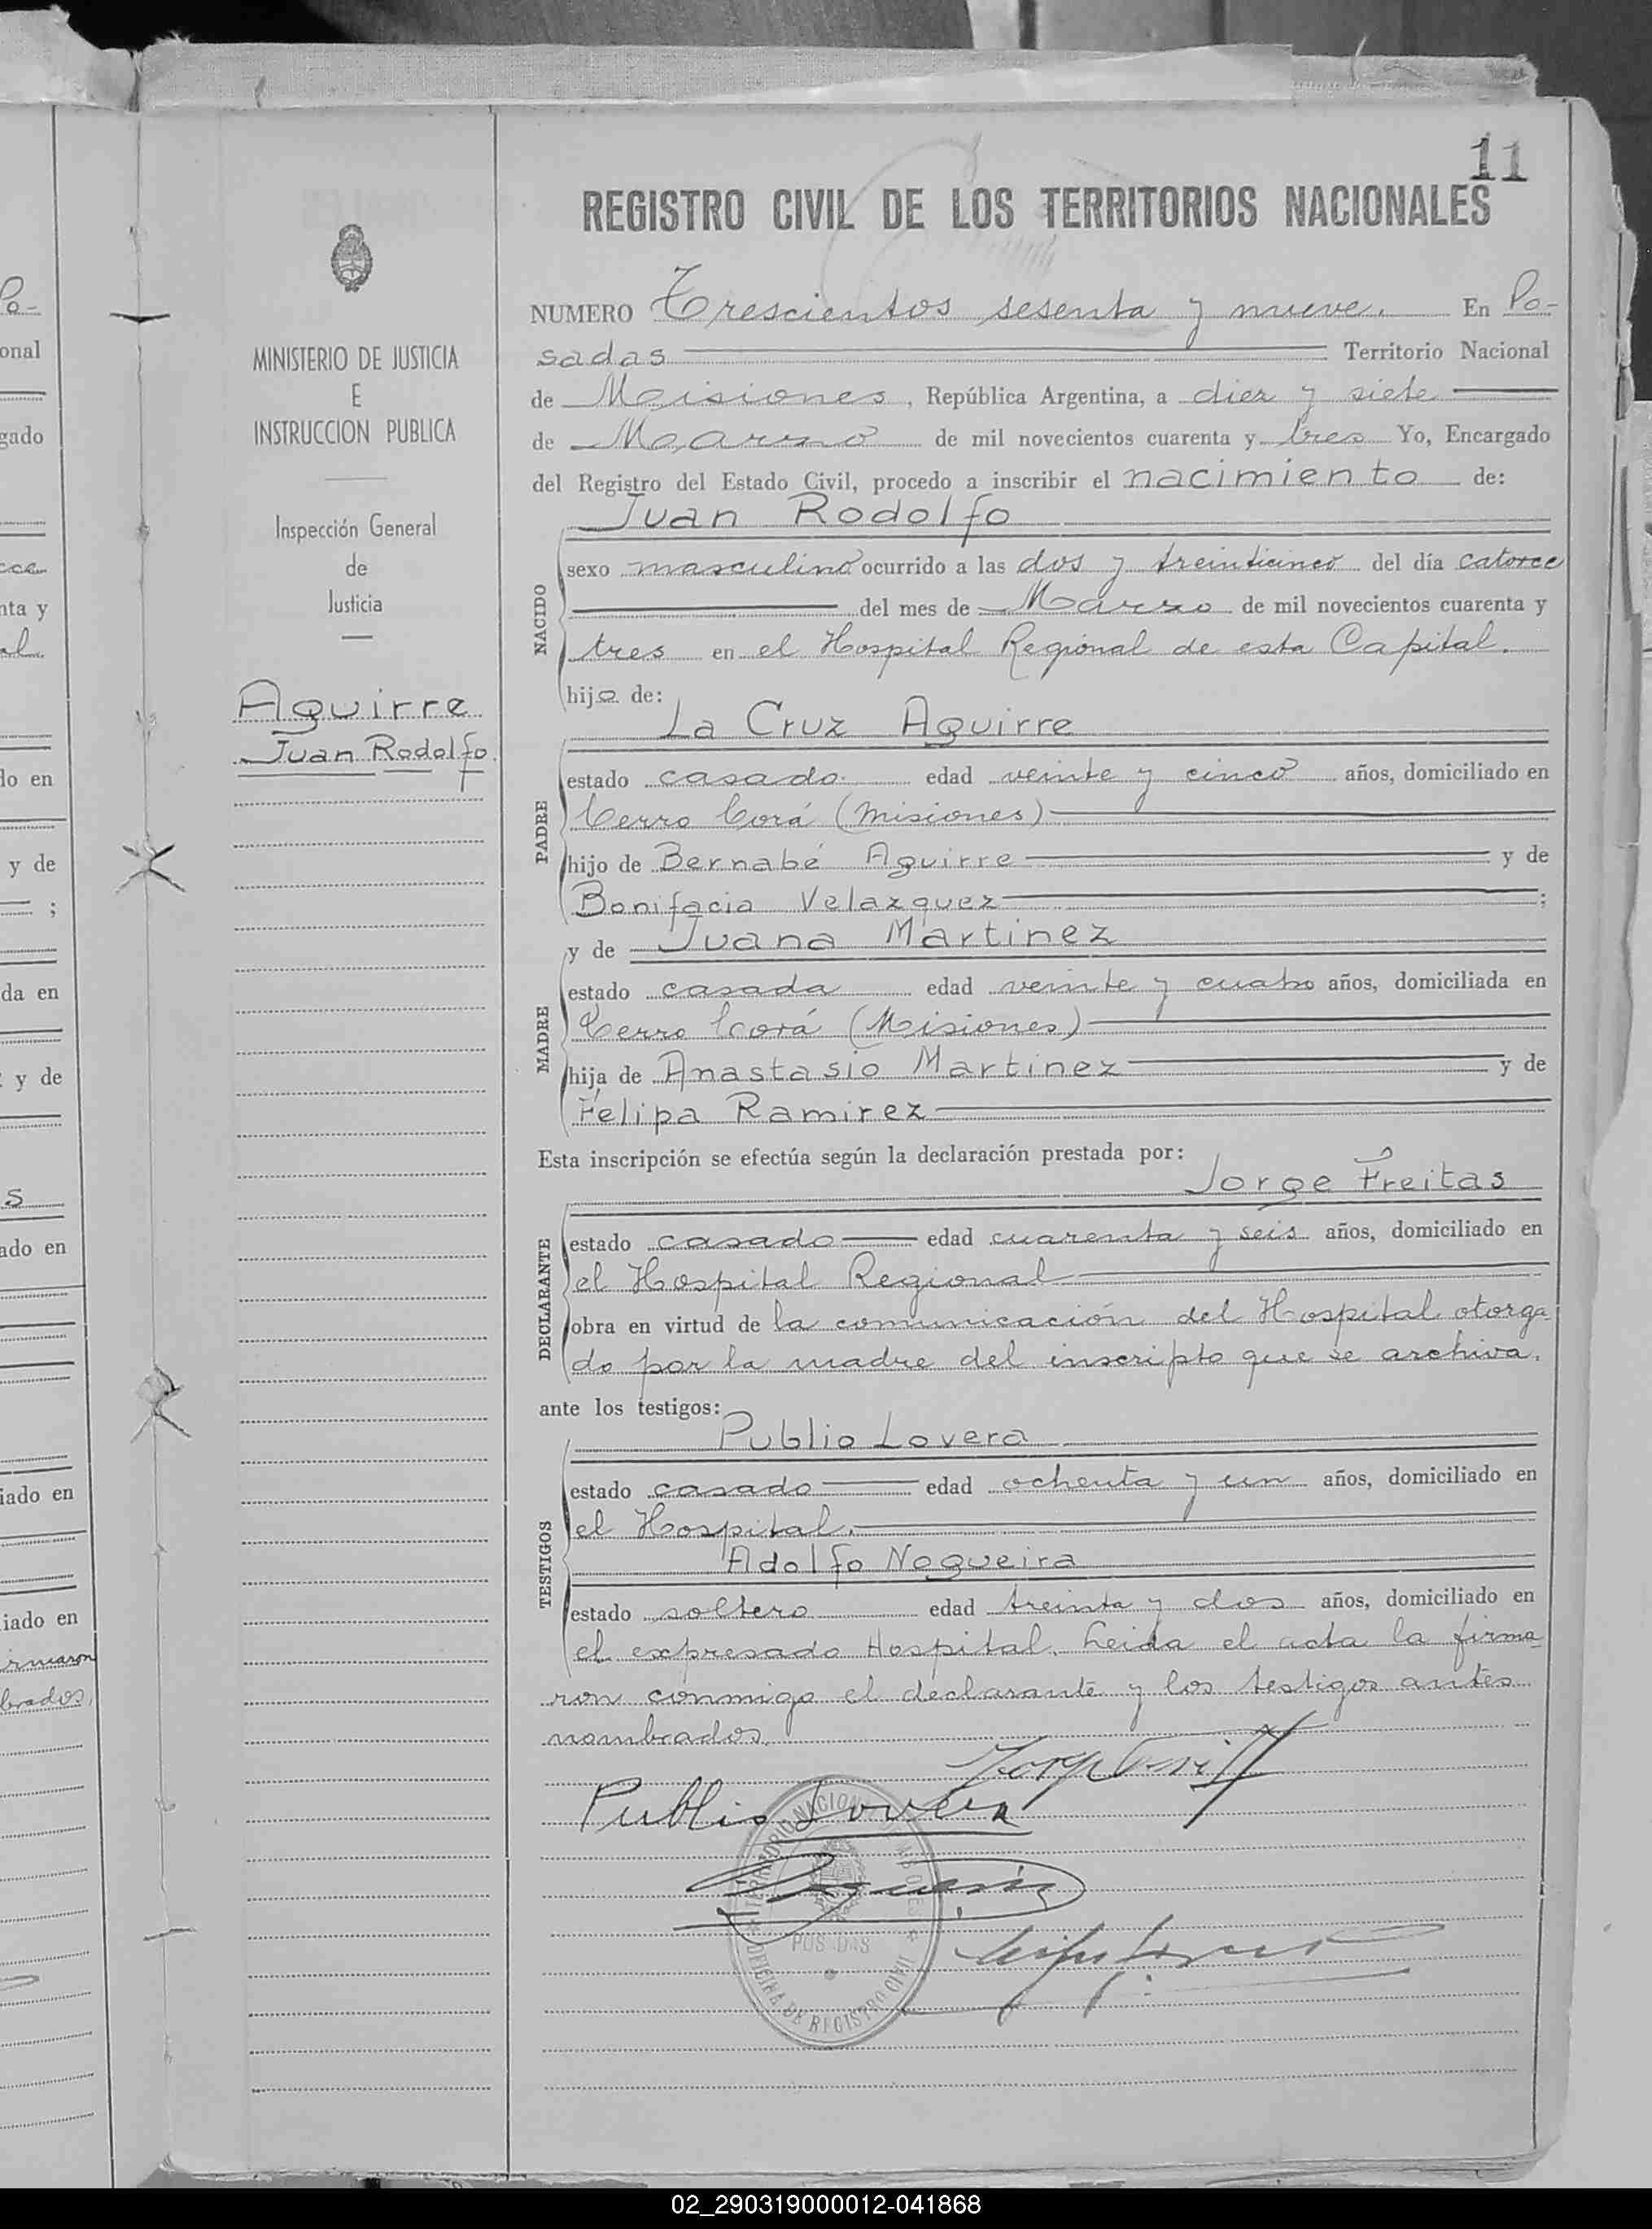 11
REGISTRO CIVIL DE LOS TERRITORIOS NACIONALES
MINISTERIO DE JUSTICIA
E
INSTRUCCION PUBLICA
Inspección General
de
Justicia
Aguirre
Juan Rodolfo
NUMERO Trescientos sesenta y nueve. En Po-
sadas Territorio Nacional
de Misiones, República Argentina, a diez y siete
de Marzo de mil novecientos cuarenta y tres Yo, Encargado
del Registro del Estado Civil, procedo a inscribir el nacimiento de:
Juan Rodolfo
NACIDO
sexo masculino ocurrido a las dos y treinticinco del día catorce
del mes de Marzo de mil novecientos cuarenta y
tres en el Hospital Regional de esta Capital.
hijo de:
La Cruz Aguirre
PADRE
estado casado edad veinte y cinco años, domiciliado en
Cerro Corá (Misiones)
hijo de Bernabé Aguirre y de
Bonifacia Velazquez ;
y de Juana Martinez
MADRE
estado casada edad veinte y cuatro años, domiciliada en
Cerro Corá (Misiones)
hija de Anastasio Martinez y de
Felipa Ramirez
Esta inscripción se efectúa según la declaración prestada por:
Jorge Freitas
DECLARANTE
estado casado edad cuarenta y seis años, domiciliado en
el Hospital Regional
obra en virtud de la comunicación del Hospital otorga
do por la madre del inscripto que se archiva.
ante los testigos:
Publio Lovera
TESTIGOS
estado casado edad ochenta y un años, domiciliado en
el Hospital.
Adolfo Nogueira
estado soltero edad treinta y dos años, domiciliado en
el expresado Hospital. Leida el acta la firma
ron conmigo el declarante y los testigos antes
nombrados.
Publio Lovera
POSADAS
OFICINA DE REGISTRO CIVIL
Po-
onal
gado
nta y
al.
do en
y de
;
da en
y de
s
ado en
iado en
iado en
rmaron
brados,
02_290319000012-041868